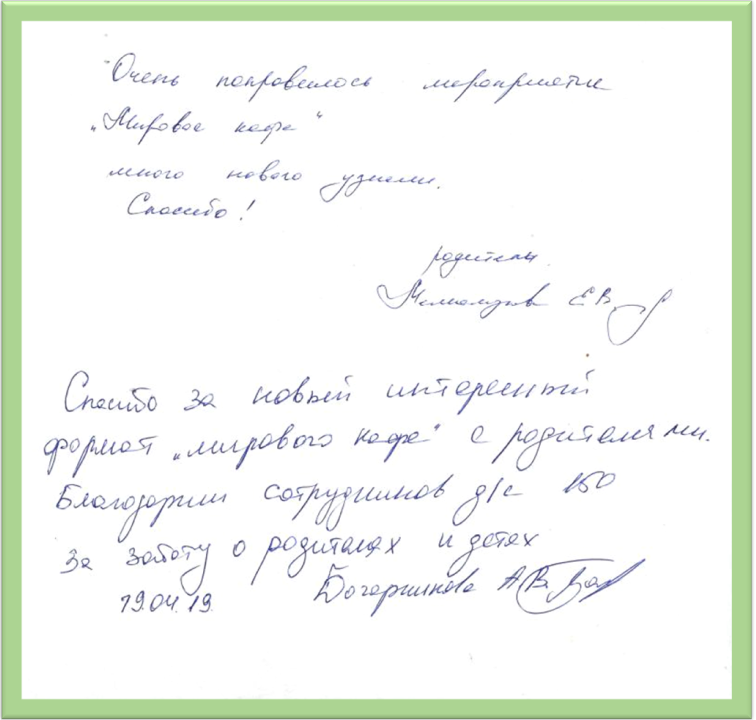 Очень понравилось мероприятие
„Мировое кафе"
много нового узнали.
Спасибо!
родители
Е.В.
Спасибо за новый интересный
формат „мирового кафе" с родителями.
Благодарим сотрудников д/с 150
за заботу о родителях и детях
19.04.19. А.В.